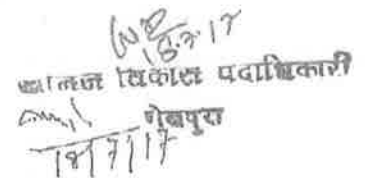 18.7.17
खनिज विकास पदाधिकारी
शेखपुरा
18/7/17